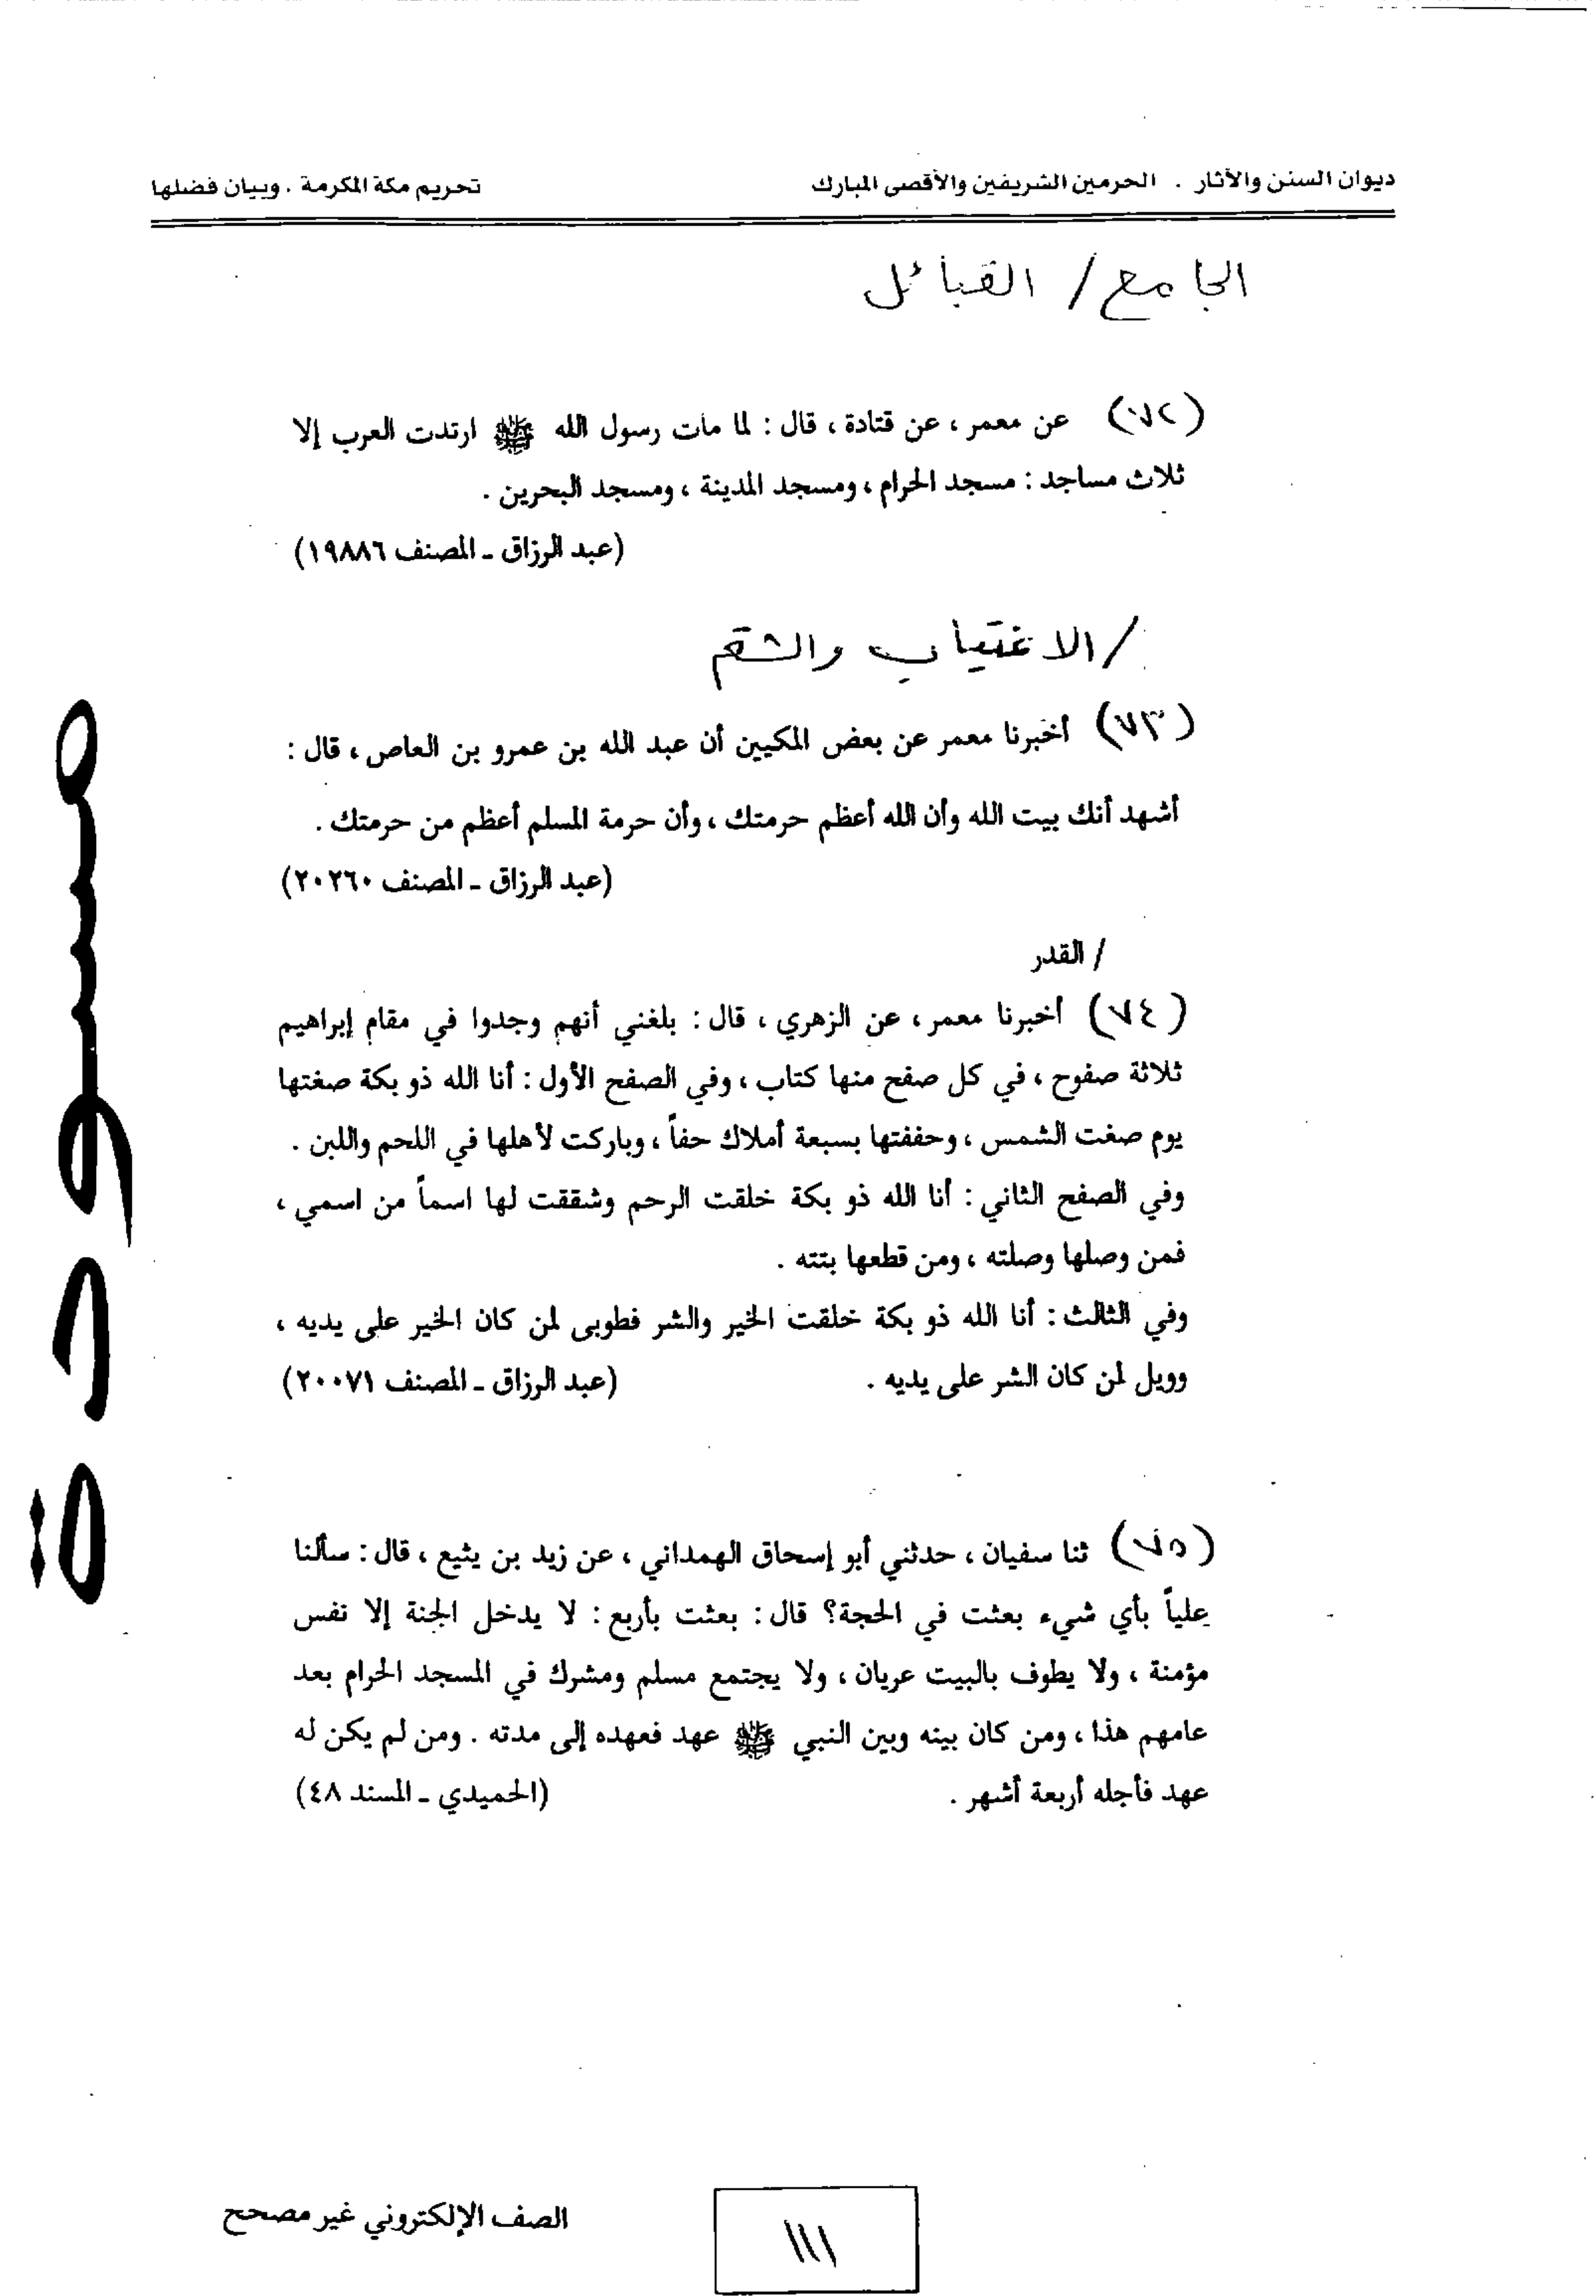 ديوان السنن والآثار . الحرمين الشريفين والأقصى المبارك
تحريم مكة المكرمة . وبيان فضلها
الجامع / القبائل
(٧٢) عن معمر ، عن قتادة ، قال : لما مات رسول الله ﷺ ارتدت العرب إلا
ثلاث مساجد : مسجد الحرام ، ومسجد المدينة ، ومسجد البحرين .
(عبد الرزاق ـ المصنف ١٩٨٨٦)
/ الاغتياب والشتم
(٧٣) أخبرنا معمر عن بعض المكيين أن عبد الله بن عمرو بن العاص ، قال :
أشهد أنك بيت الله وأن الله أعظم حرمتك ، وأن حرمة المسلم أعظم من حرمتك .
(عبد الرزاق ـ المصنف ٢٠٢٦٠)
/ القدر
(٧٤) أخبرنا معمر ، عن الزهري ، قال : بلغني أنهم وجدوا في مقام إبراهيم
ثلاثة صفوح ، في كل صفح منها كتاب ، وفي الصفح الأول : أنا الله ذو بكة صغتها
يوم صغت الشمس ، وحففتها بسبعة أملاك حفاً ، وباركت لأهلها في اللحم واللبن .
وفي الصفح الثاني : أنا الله ذو بكة خلقت الرحم وشققت لها اسماً من اسمي ،
فمن وصلها وصلته ، ومن قطعها بتته .
وفي الثالث : أنا الله ذو بكة خلقت الخير والشر فطوبى لمن كان الخير على يديه ،
وويل لمن كان الشر على يديه . (عبد الرزاق ـ المصنف ٢٠٠٧١)
(٧٥) ثنا سفيان ، حدثني أبو إسحاق الهمداني ، عن زيد بن يثيع ، قال : سألنا
علياً بأي شيء بعثت في الحجة؟ قال : بعثت بأربع : لا يدخل الجنة إلا نفس
مؤمنة ، ولا يطوف بالبيت عريان ، ولا يجتمع مسلم ومشرك في المسجد الحرام بعد
عامهم هذا ، ومن كان بينه وبين النبي ﷺ عهد فعهده إلى مدته . ومن لم يكن له
عهد فأجله أربعة أشهر . (الحميدي ـ المسند ٤٨)
مسودة
الصف الإلكتروني غير مصحح
١١١